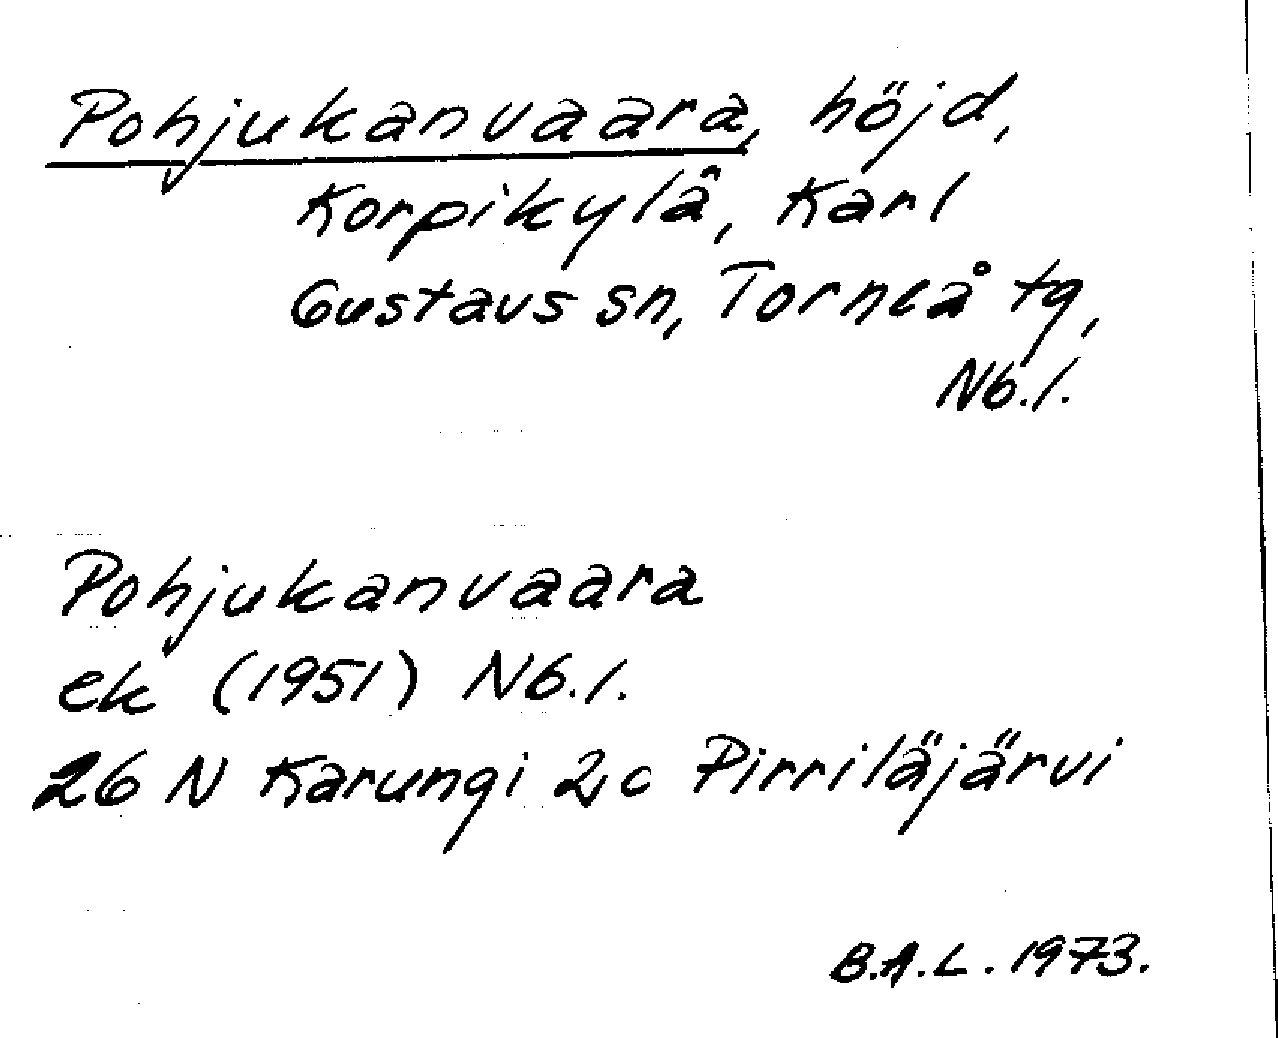 Pohjukanvaara, höjd,
Korpikylä, Karl
Gustavs sn, Torneå tg,
Nb.l.
Pohjukanvaara
ek (1951) Nb.l.
26 N Karungi 2c Pirriläjärvi
B.A.L. 1973.